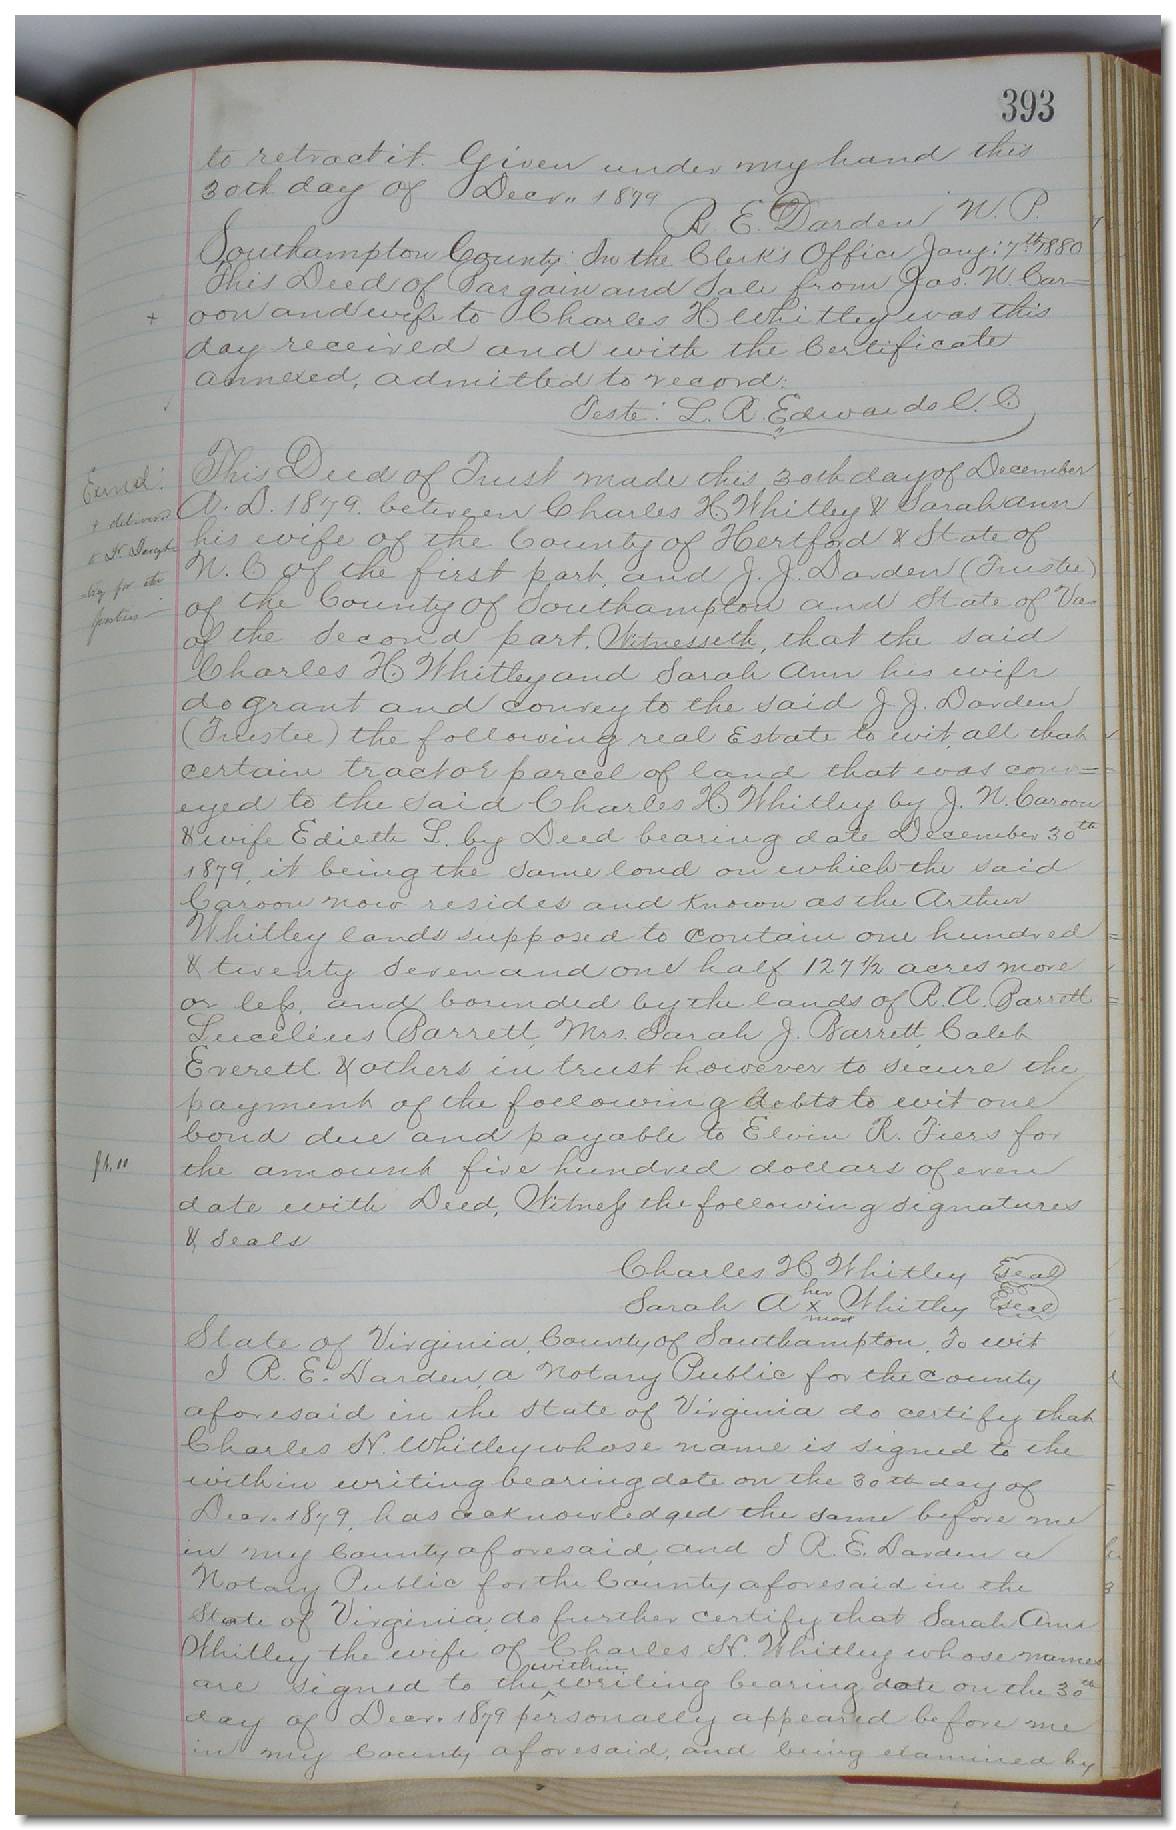 393
to retract it. Given under my hand this
30th day of Decr„ 1879
R. E. Darden N. P.
Southampton County: In the Clerk's Office Jany: 7th 1880
This Deed of Bargain and Sale from Jas. N. Car=
oon and wife to Charles H Whitley was this
day received and with the Certificate
annexed, admitted to record:
Teste: L. R. Edwards C. C.
This Deed of Trust made this 30th day of December
A. D. 1879. between Charles H Whitley & Sarah Ann
his wife of the County of Hertford & State of
N. C of the first part, and J. J. Darden (Trustee)
of the County of Southampton and State of Va
of the second part. Witnesseth, that the said
Charles H Whitley and Sarah Ann his wife
do grant and convey to the said J. J. Darden
(Trustee) the following real Estate to wit, all that
certain tract or parcel of land that was conv=
eyed to the said Charles H. Whitley by J. N. Caroon
& wife Edieth L. by Deed bearing date December 30th
1879, it being the same land on which the said
Caroon now resides and known as the Arthur
Whitley lands supposed to contain one hundred
& twenty seven and one half 127½ acres more
or less, and bounded by the lands of R. A. Barrett
Lucelius Barrett, Mrs. Sarah J. Barrett, Caleb
Everett & others in trust however to secure the
payment of the following debts to wit one
bond due and payable to Elvin R. Fiers for
the amount five hundred dollars of even
date with Deed, Witness the following signatures
& seals
Charles H Whitley Seal
Sarah A her x mark Whitley Seal
State of Virginia, County of Southampton, To wit
I R. E. Darden, a Notary Public for the county
aforesaid in the State of Virginia do certify that
Charles H. Whitley whose name is signed to the
within writing bearing date on the 30th day of
Decr. 1879, has acknowledged the same before me
in my County aforesaid, and I R. E. Darden a
Notary Public for the County aforesaid in the
State of Virginia, do further certify that Sarah Ann
Whitley the wife of Charles H. Whitley whose names
are signed to the within writing bearing date on the 30th
day of Decr. 1879 personally appeared before me
in my County aforesaid, and being examined by
& delivered
for the
parties